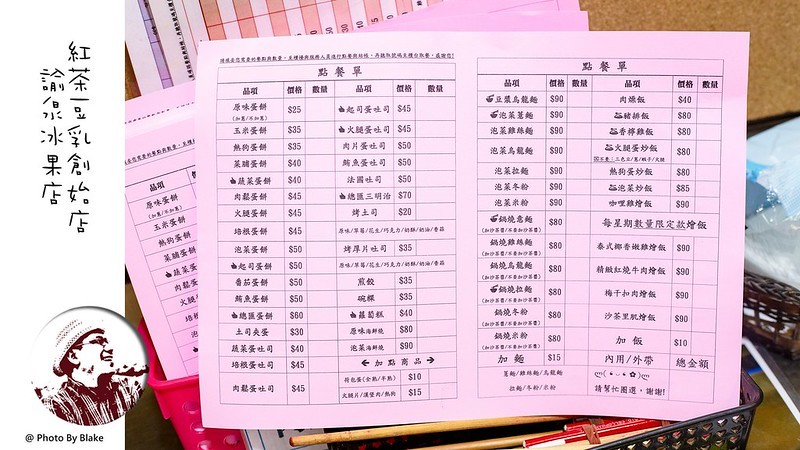 紅茶豆乳創始店
諭泉冰果店
@ Photo By Blake
點餐單
品項 價格 數量 品項 價格 數量
原味蛋餅 $25 起司蛋吐司 $45
(加蔥/不加蔥)
玉米蛋餅 $35 火腿蛋吐司 $45
熱狗蛋餅 $35 肉片蛋吐司 $50
菜脯蛋餅 $40 鮪魚蛋吐司 $50
蔬菜蛋餅 $40 法國吐司 $50
肉鬆蛋餅 $45 總匯三明治 $70
火腿蛋餅 $45 烤土司 $20
培根蛋餅 $45 原味/草莓/花生/巧克力/奶酥/奶油/香蒜
泡菜蛋餅 $50 烤厚片吐司 $35
起司蛋餅 $50 原味/草莓/花生/巧克力/奶酥/奶油/香蒜
番茄蛋餅 $50 煎餃 $35
鮪魚蛋餅 $50 碗粿 $35
總匯蛋餅 $60 蘿蔔糕 $40
土司夾蛋 $30 原味海鮮燒 $80
蔬菜蛋吐司 $40 泡菜海鮮燒 $90
培根蛋吐司 $45 加點商品
肉鬆蛋吐司 $45 荷包蛋(全熟/半熟) $10
火腿片/漢堡肉/熱狗 $15
點餐單
品項 價格 數量 品項 價格 數量
豆漿烏龍麵 $90 肉燥飯 $40
泡菜薏麵 $90 豬排飯 $80
泡菜雞絲麵 $90 香檸雞飯 $80
泡菜烏龍麵 $90 火腿蛋炒飯 $80
泡菜拉麵 $90 熱狗蛋炒飯 $80
泡菜冬粉 $90 泡菜蛋炒飯 $85
泡菜米粉 $90 咖哩雞燴飯 $90
鍋燒意麵 $80 每星期數量限定款燴飯
(加沙茶醬/不要加沙茶醬)
鍋燒雞絲麵 $80 泰式椰香嫩雞燴飯 $90
(加沙茶醬/不要加沙茶醬)
鍋燒烏龍麵 $80 精緻紅燒牛肉燴飯 $90
(加沙茶醬/不要加沙茶醬)
鍋燒拉麵 $80 梅干扣肉燴飯 $90
(加沙茶醬/不要加沙茶醬)
鍋燒冬粉 $80 沙茶里肌燴飯 $90
(加沙茶醬/不要加沙茶醬)
鍋燒米粉 $80 加飯 $10
(加沙茶醬/不要加沙茶醬)
加麵 $15 內用/外帶 總金額
薏麵/雞絲麵/烏龍麵
拉麵/冬粉/米粉 請幫忙圈選，謝謝!
品項
原味蛋餅
(加蔥/不加蔥)
玉米蛋餅
熱狗蛋餅
菜脯蛋餅
蔬菜蛋餅
肉鬆蛋餅
火腿蛋